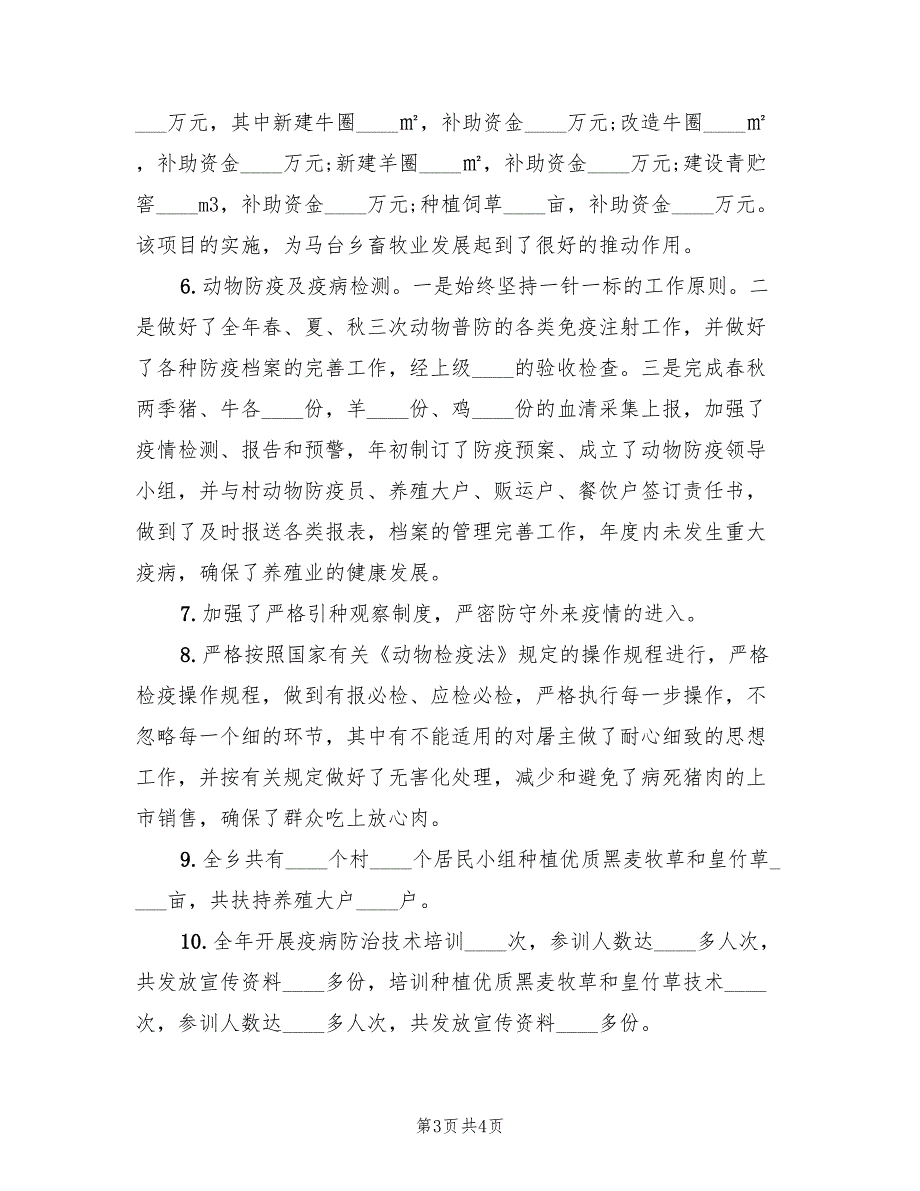 ___万元，其中新建牛圈____㎡，补助资金____万元;改造牛圈____㎡
，补助资金____万元;新建羊圈____㎡，补助资金____万元;建设青贮
窖____m3，补助资金____万元;种植饲草____亩，补助资金____万元。
该项目的实施，为马台乡畜牧业发展起到了很好的推动作用。
6.动物防疫及疫病检测。一是始终坚持一针一标的工作原则。二
是做好了全年春、夏、秋三次动物普防的各类免疫注射工作，并做好
了各种防疫档案的完善工作，经上级____的验收检查。三是完成春秋
两季猪、牛各____份，羊____份、鸡____份的血清采集上报，加强了
疫情检测、报告和预警，年初制订了防疫预案、成立了动物防疫领导
小组，并与村动物防疫员、养殖大户、贩运户、餐饮户签订责任书，
做到了及时报送各类报表，档案的管理完善工作，年度内未发生重大
疫病，确保了养殖业的健康发展。
7.加强了严格引种观察制度，严密防守外来疫情的进入。
8.严格按照国家有关《动物检疫法》规定的操作规程进行，严格
检疫操作规程，做到有报必检、应检必检，严格执行每一步操作，不
忽略每一个细的环节，其中有不能适用的对屠主做了耐心细致的思想
工作，并按有关规定做好了无害化处理，减少和避免了病死猪肉的上
市销售，确保了群众吃上放心肉。
9.全乡共有____个村____个居民小组种植优质黑麦牧草和皇竹草_
___亩，共扶持养殖大户____户。
10.全年开展疫病防治技术培训____次，参训人数达____多人次，
共发放宣传资料____多份，培训种植优质黑麦牧草和皇竹草技术____
次，参训人数达____多人次，共发放宣传资料____多份。
第3页 共4页